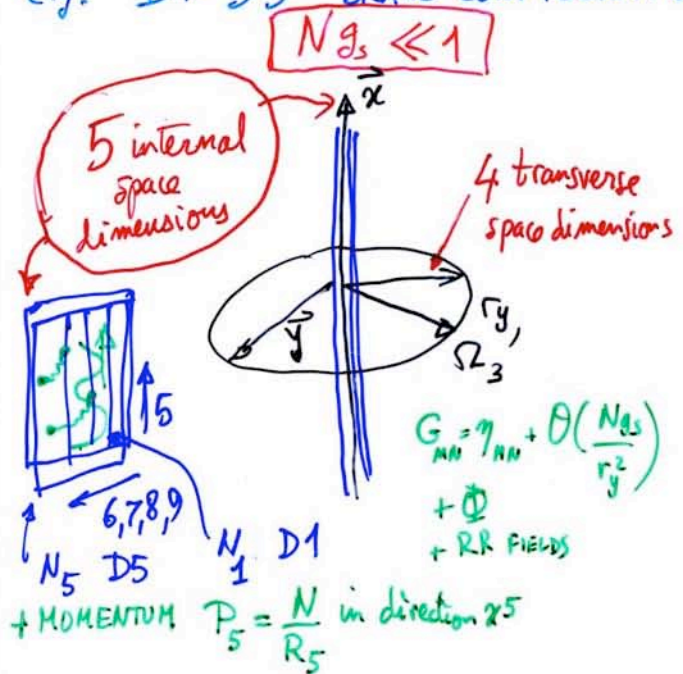 N gₛ ≪ 1
x⃗
5 internal
space
dimensions
4 transverse
space dimensions
y⃗
r_y,
Ω₃
5
6,7,8,9
N₅ D5
N₁ D1
G_MN = η_MN + O(N gₛ / r_y²)
+ Φ
+ RR FIELDS
+ MOMENTUM P₅ = N / R₅ in direction x⁵